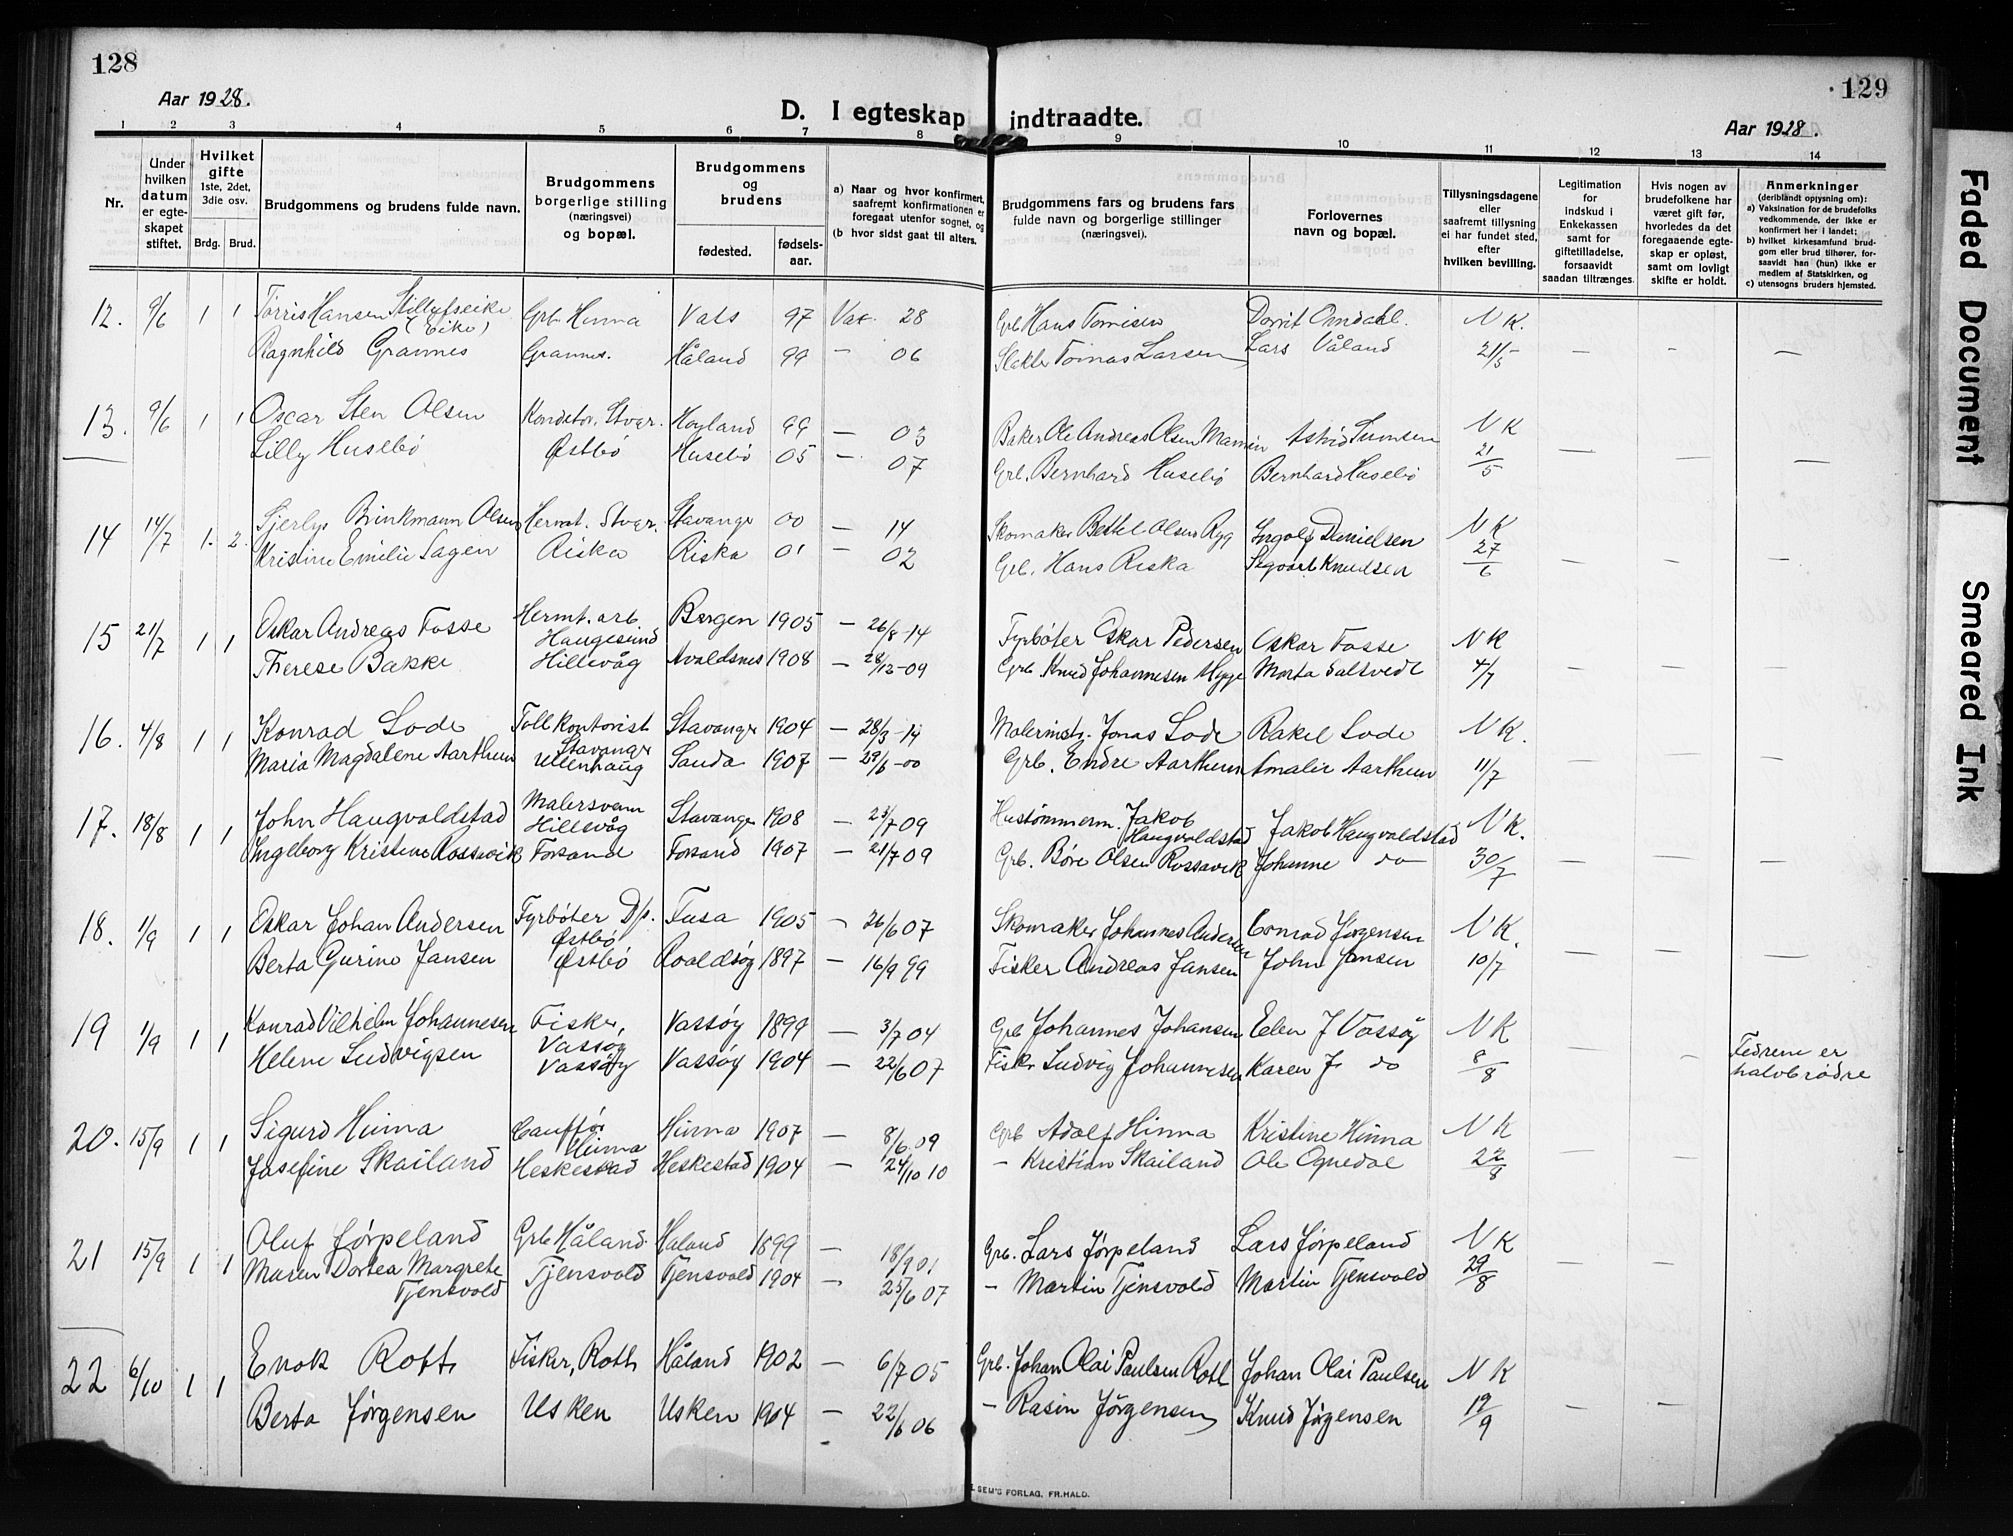 128
Aar 1928.
D. I egteskap indtraadte.
129
Aar 1928.
1 2 3 4 5 6 7 8 9 10 11 12 13 14
Nr.
Under hvilken datum er egteskapet stiftet.
Hvilket gifte
1ste, 2det, 3die osv.
Brdg. Brud.
Brudgommens og brudens fulde navn.
Brudgommens borgerlige stilling (næringsvei) og bopæl.
Brudgommens og brudens
fødested. fødsels-aar.
a) Naar og hvor konfirmert, saafremt konfirmationen er foregaat utenfor sognet, og
(b hvor sidst gaat til alters.
Brudgommens fars og brudens fars fulde navn og borgerlige stillinger (næringsvei).
Forlovernes navn og bopæl.
Tillysningsdagene eller saafremt tillysning ei har fundet sted, efter hvilken bevilling.
Legitimation for indskud i Enkekassen samt for giftetilladelse, forsaavidt saadan tiltrænges.
Hvis nogen av brudefolkene har været gift før, hvorledes da det foregaaende egteskap er opløst, samt om lovligt skifte er holdt.
Anmerkninger
(deriblandt oplysning om):
a) Vaksination for de brudefolks vedkommende, der ikke er konfirmert her i landet;
b) hvilket kirkesamfund brudgom eller brud tilhører, forsaavidt han (hun) ikke er medlem af Statskirken, og
c) utensogns bruders hjemsted.
12. 9/6 1 1 Tørris Hansen (Eike) Grb. Hinna Vats 97 28 Grb Hans Omdahl. N K.
Ragnhild Grannes Grannes. Håland 99 — 06 Tomas Larsen Lars Våland 21/5 — - —
13. 9/6 1 1 Oscar Sten Olsen Stvgr. Høyland 99 — 03 Baker Ole Andreas Olsen N K
Lilly Husebø Østbø Husebø 05 — 07 Grb. Bernhard Husebø Bernhard Husebø 21/5 — — —
14 14/7 1. 2. Brinkmann Olsen Hermt. Stvgr. Stavanger 00 — 14 Skomaker Olsen Danielsen N K
Kristine Emilie Sagen Riska Riska 01 — 02 Grb. Hans Riska Knudsen 27/6 — — —
15 21/7 1 1 Oskar Andreas Fosse Hermt. arb. Haugesund Bergen 1905 — 26/8-14 Fyrbøter Oskar Pedersen Oskar Fosse N K
Therese Bakke Hillevåg Avaldsnes 1908 — 28/12-09 Grb. Knud Johannesen Marta 4/7
16. 4/8 1 1 Konrad Lode Tollkontorist Stavanger Stavanger 1904 — 28/3-14 Malermstr. Jonas Lode Rakel Lode N K.
Maria Magdalene Aarthun Ullenhaug Sauda 1907 — 29/6-00 Grb. Endre Aarthun Amalie Aarthun 11/7 — —
17. 18/8 1 1 John Haugvaldstad Malersvenn Hillevåg Stavanger 1908 — 23/7 09 Hustømmerm. Jakob Haugvaldstad Jakob Haugvaldstad N K.
Ingeborg Kristine Rossavik Forsand Forsand 1907 — 21/7 09 Grb. Børe Olsen Rossavik Johanne do 30/7 — — —
18. 1/9 1 1 Oskar Johan Andersen Fyrbøter D/s. Østbø Fusa 1905 — 26/6 07 Skomaker Johannes Andersen Conrad Jørgensen N K.
Berta Gurine Jansen Østbø Roaldsøy 1897 — 16/9 99 Fisker Andreas Jansen John Jansen 10/7 — — —
19 1/9 1 1 Konrad Vilhelm Johannesen Fisker, Vassøy Vassøy 1899 — 3/7 04 Grb Johannes Johansen Elen J Vassøy N K
Helene Ludvigsen Vassøy Vassøy 1904 — 22/6 07 Fisk. Ludvig Johannesen Karen J. do 8/8 — - Fedrene er halvbrødre
20. 15/9 1 1 Sigurd Hinna Hinna Hinna 1907 — 8/6 09 Grb Adolf Hinna Kristine Hinna N K
Josefine Skailand Heskestad Heskestad 1904 — 24/10 10 - Kristian Skailand Ole Ognedal 22/8 — —
21 15/9 1 1 Oluf Jørpeland Grb Håland Håland 1899 — 18/9 01 Grb. Lars Jørpeland Lars Jørpeland N K
Maren Dortea Margrete Tjensvold Tjensvold Tjensvold 1904 — 25/6 07 - Martin Tjensvold Martin Tjensvold 29/8 — —
22 6/10 1 1 Enok Rott Fisker, Rott Håland 1902 — 6/7 05 Grb. Johan Olai Paulsen Rott Johan Olai Paulsen N K
Berta Jørgensen Usken Usken 1904 — 22/6 06 - Rasm Jørgensen Knud Jørgensen 19/9 — —
SEM'S FORLAG, FR.HALD.
Faded Document
Smeared Ink